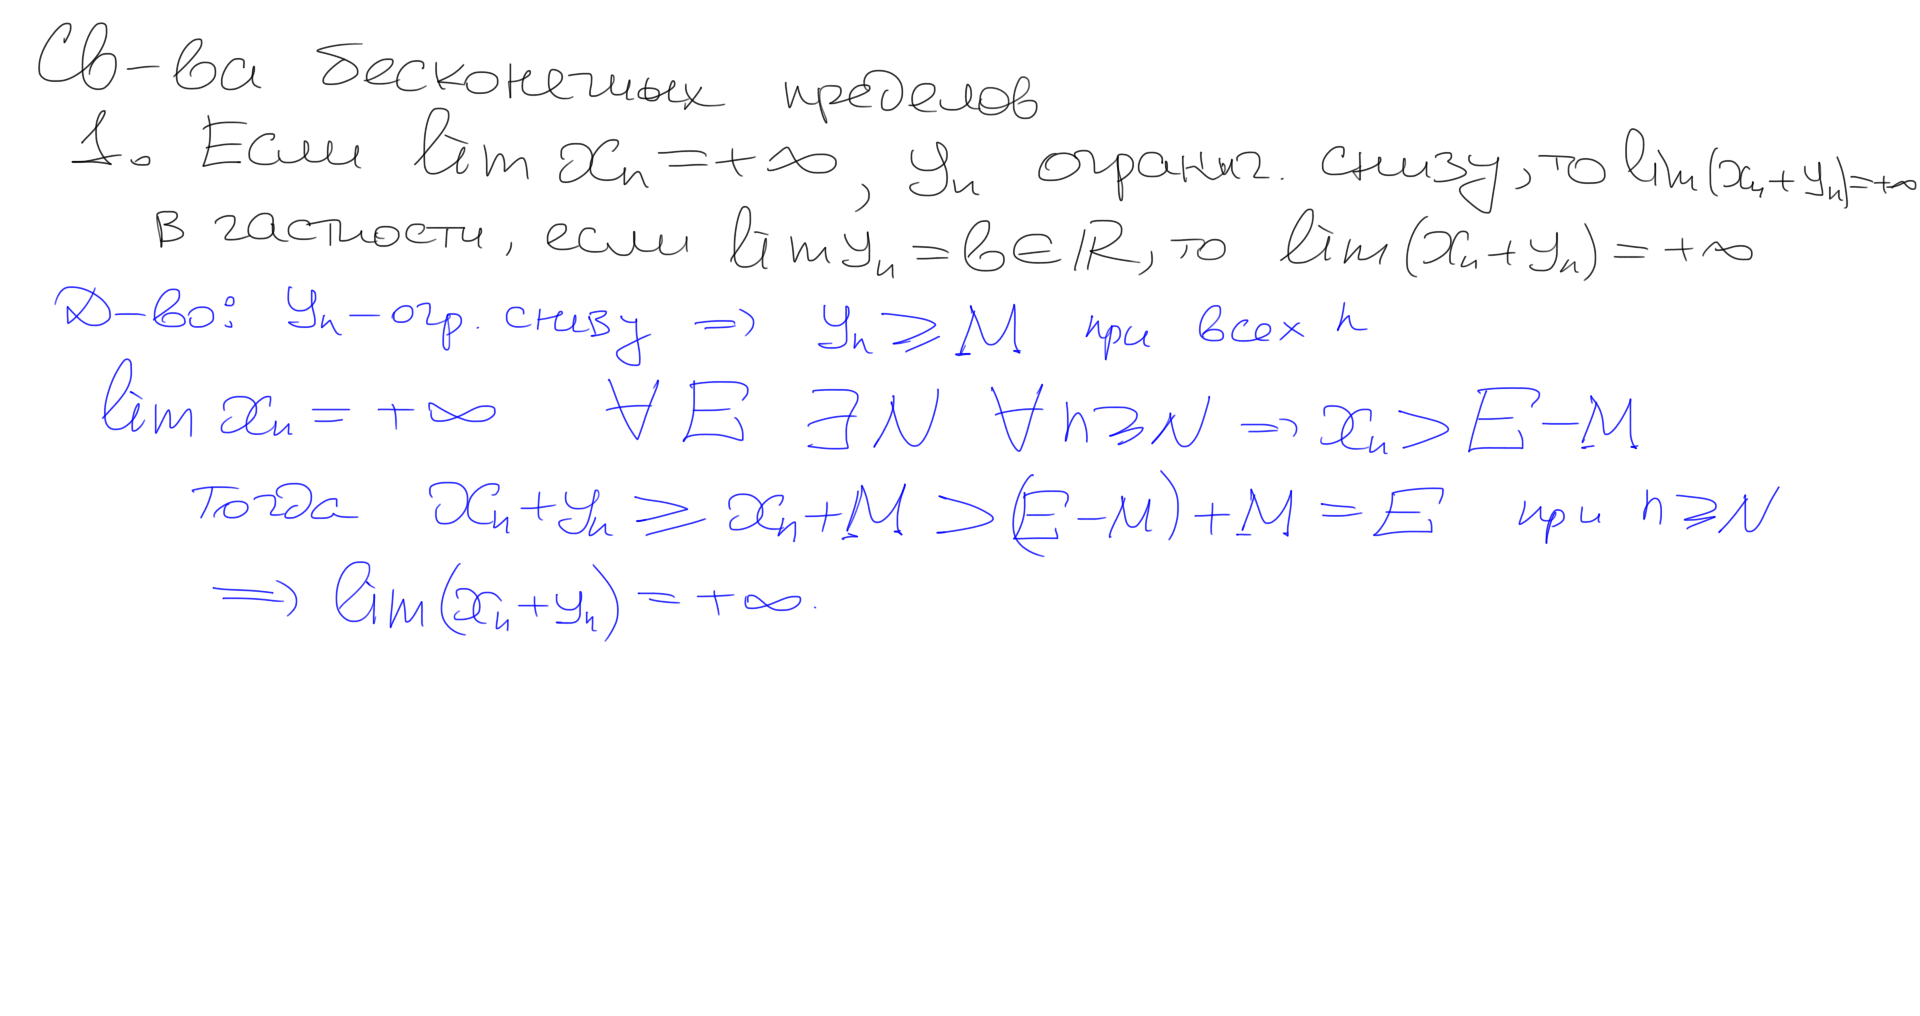 Св-ва бесконечных пределов
1. Если lim xₙ = +∞, yₙ огранич. снизу, то lim(xₙ + yₙ) = +∞
В частности, если lim yₙ = b ∈ ℝ, то lim(xₙ + yₙ) = +∞
Д-во: yₙ – огр. снизу ⇒ yₙ ⩾ M при всех n
lim xₙ = +∞ ∀ E ∃ N ∀ n ⩾ N ⇒ xₙ > E – M
Тогда xₙ + yₙ ⩾ xₙ + M > (E – M) + M = E при n ⩾ N
⇒ lim(xₙ + yₙ) = +∞.